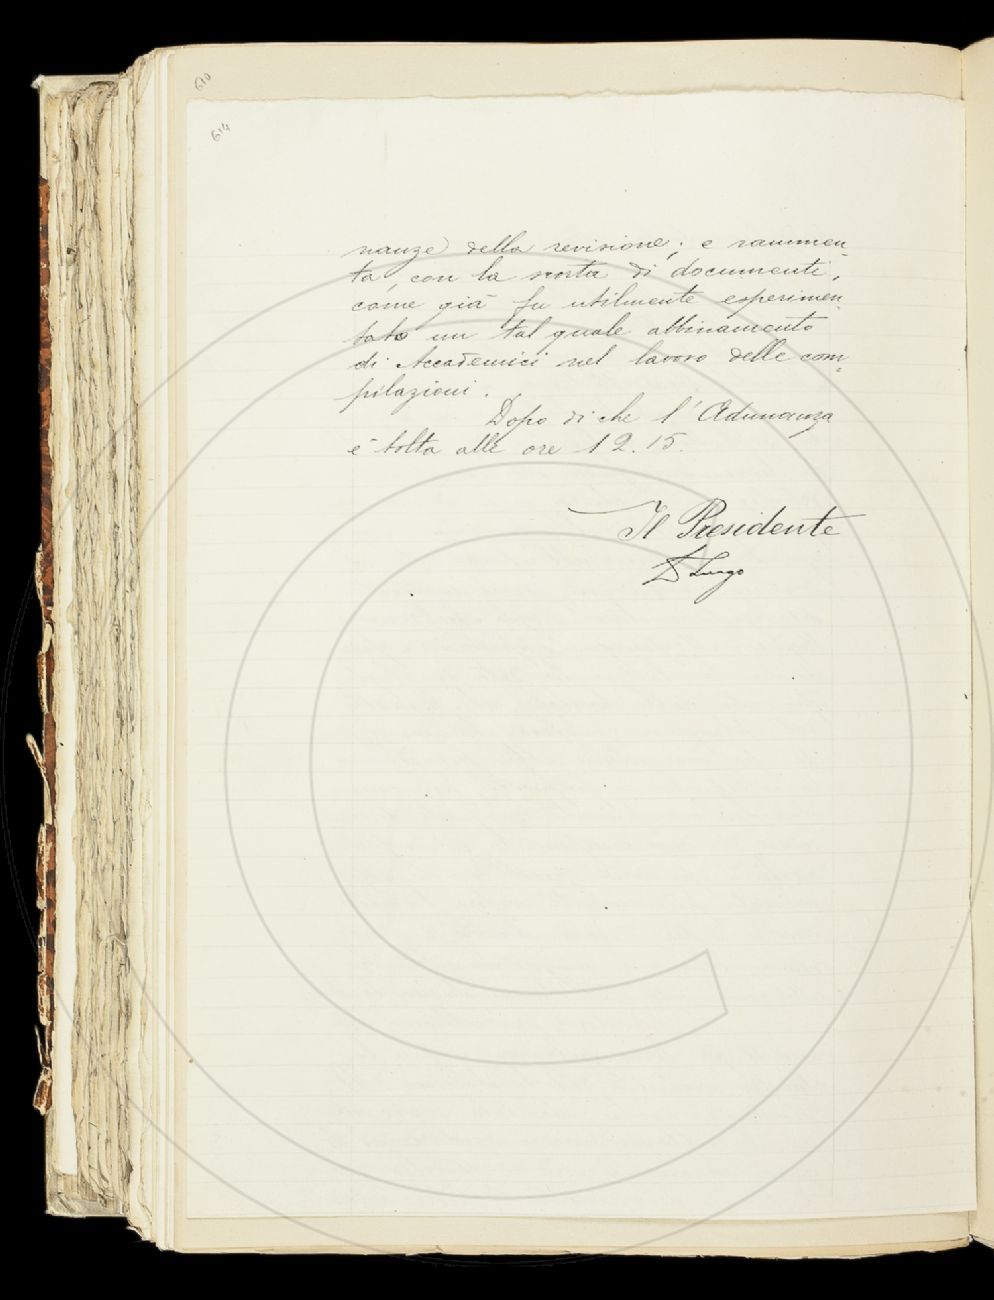 610
614
nanze) della revisione; e rammen-
ta, con la scorta di documenti,
come già fu utilmente esperimen-
tato un tal quale abbinamento
di Accademici nel lavoro delle com-
pilazioni.
Dopo di che l'Adunanza
è tolta alle ore 12.15.
Il Presidente